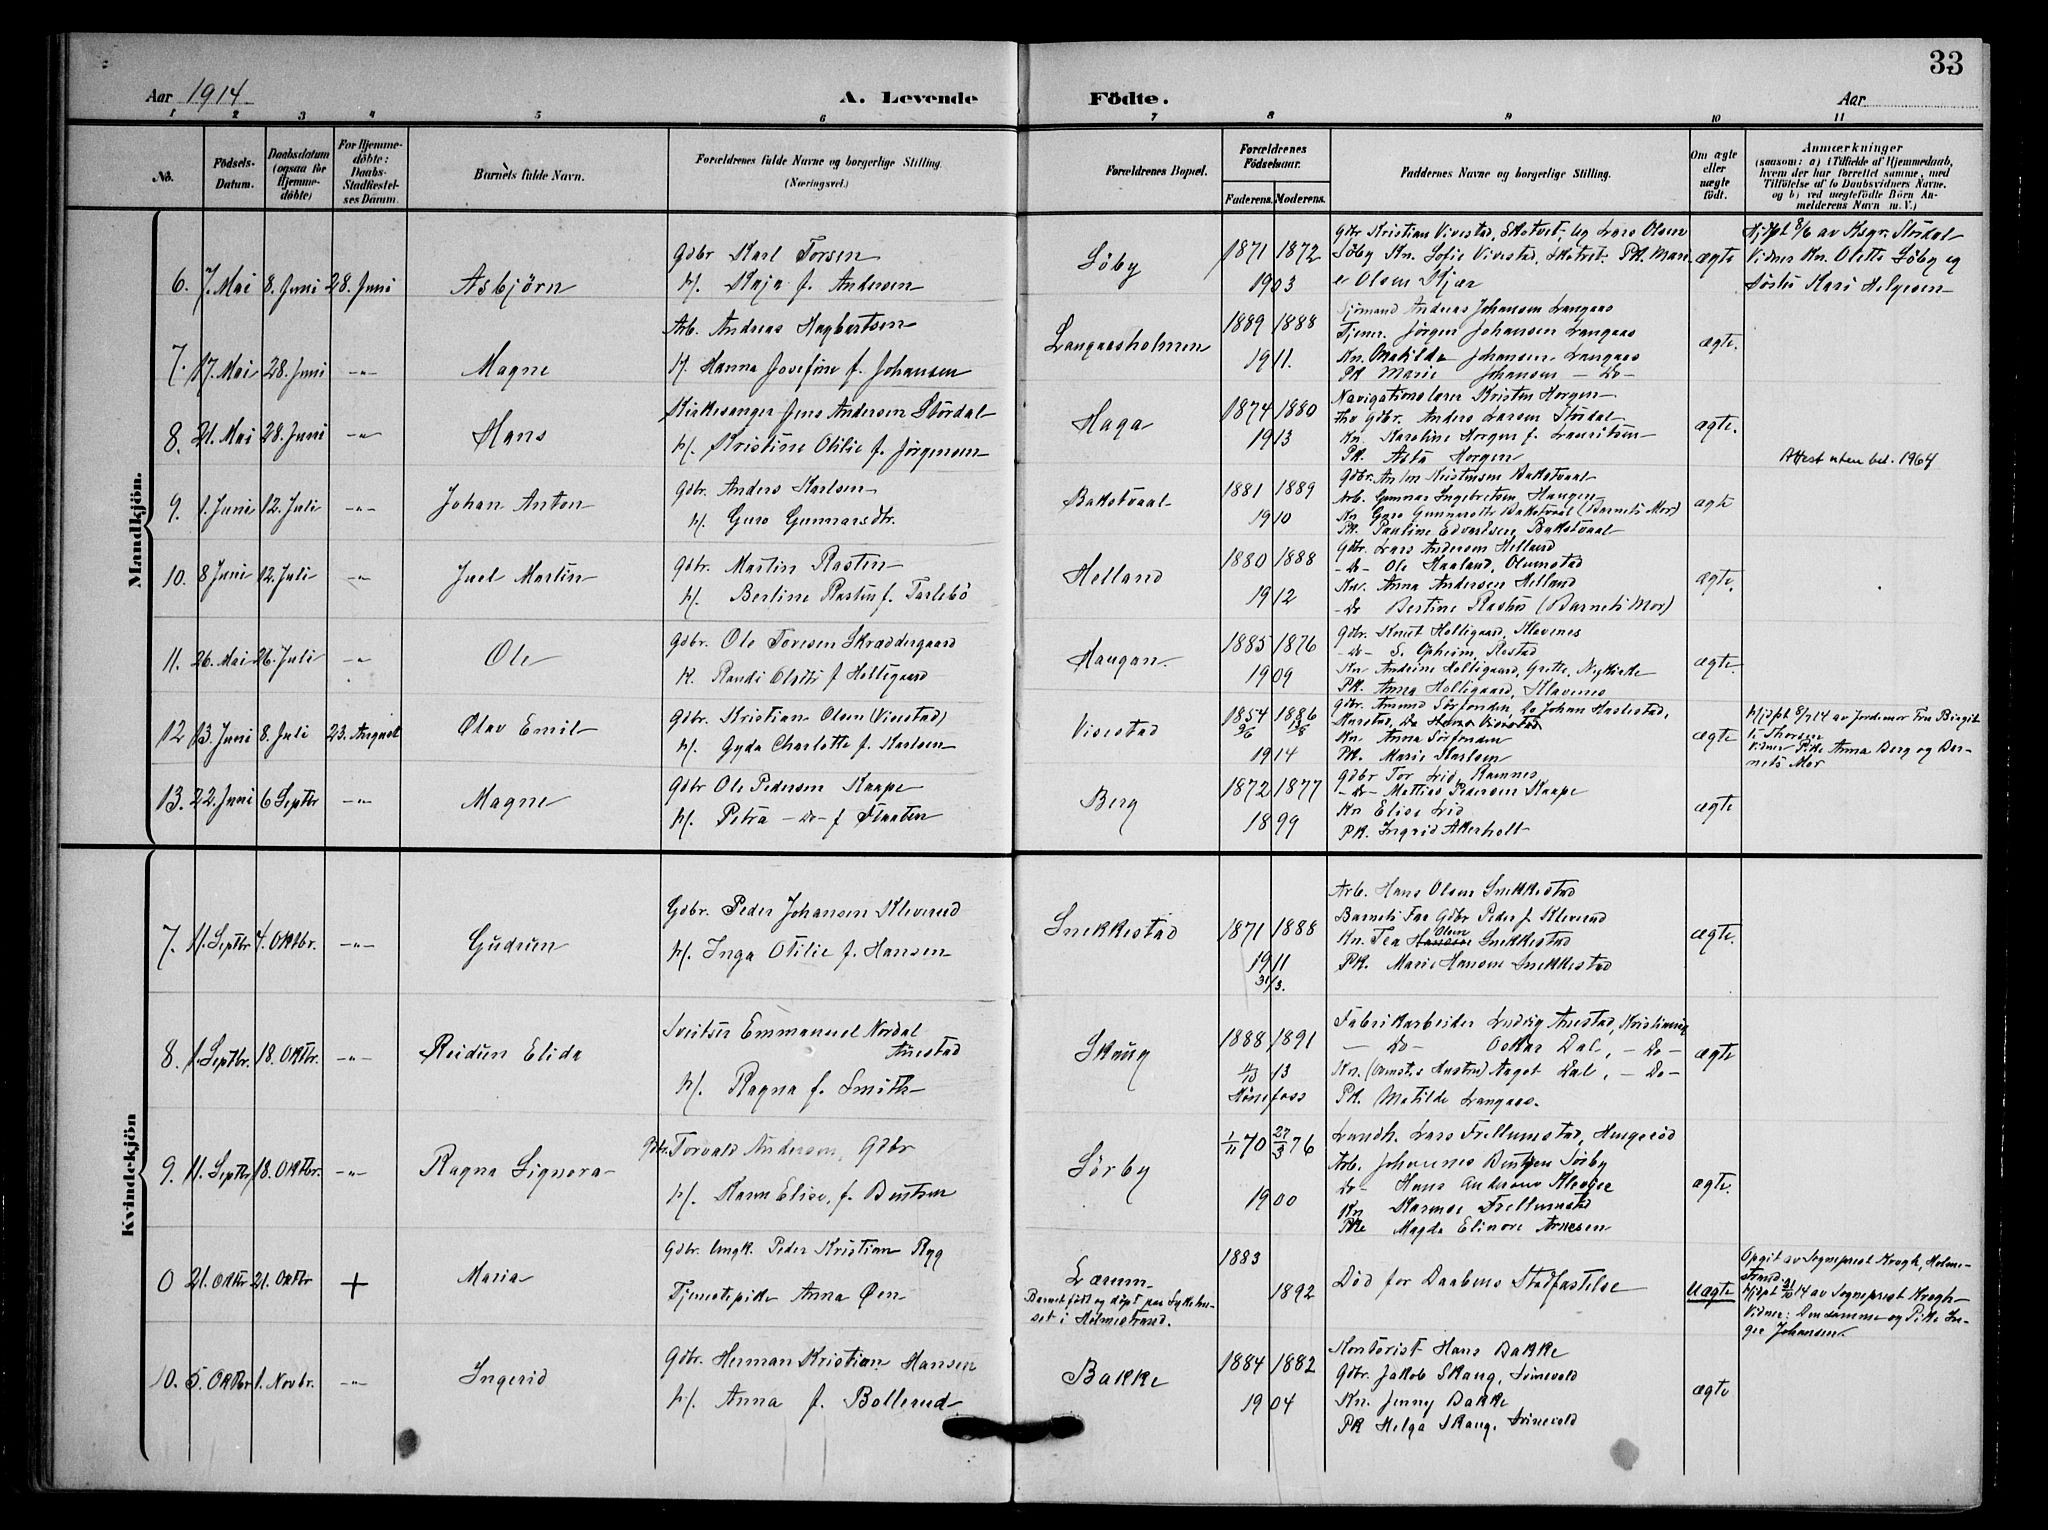 33
Aar 1914 A. Levende Födte. Aar
1 2 3 4 5 6 7 8 9 10 11
No.
Födsels-Datum.
Daabsdatum (ogsaa for Hjemme-döbte)
For Hjemme-döbte: Daabs-Stadfæstel-ses Datum.
Barnets fulde Navn.
Forældrenes fulde Navne og borgerlige Stilling.
(Næringsvei.)
Forældrenes Bopæl.
Forældrenes Födselsaar.
Faderens. Moderens.
Faddernes Navne og borgerlige Stilling.
Om ægte eller uægte födt.
Anmærkninger
(saasom: a) i Tilfælde af Hjemmedaab,
hvem der har forrettet samme, med
Tilföielse af to Daabsvidners Navne.
og b) ved uægtefödte Börn An-
melderens Navn m. V.)
Mandkjön.
6. 7. Mai 8. Juni 28. Juni Asbjörn
Gdbr Karl Torsen
H. Maja f. Andersen
Söby
1871 1872
1903
Gdbr Kristian Vivestad, Skatvet, og Lars Olsen
Söby Kn. Sofie Vivestad, Skatvet. Pk. Mari-
e Olsen Kjær
ægte
Hjdpt 8/6 av Ksgr. Stördal
Vidner Kn. Olette Söby og
Kari Helgesen
7. 17. Mai 28. Juni -"- Magne
Arb. Andreas Hagbertsen
H. Hanna Josefine f. Johansen
Langaasholmen
1889 1888
1911.
Sjömand Andreas Johansen Langaas
Tjener. Jörgen Johansen Langaas
Kn. Matilde Johansen Langaas
Pk Marie Johansen - Do -
ægte.
8. 21. Mai 28. Juni -"- Hans
Kirkesanger Jens Andersen Stördal
H. Kristine Otilie f. Jörgensen
Haga
1874 1880
1913
Navigationslærer Kristen Horgen
fhv Gdbr. Anders Larsen Stördal
Kn. Karoline Horgen f. Lauritsen
Pk. Asta Horgen
ægte.
Attest uten bet. 1964
9. 1. Juni 12. Juli -"- Johan Anton
Gdbr. Anders Karlsen
H. Guro Gunnarsdtr.
Bakstvaal
1881 1889
1910
Gdbr. Anton Kristensen Bakstvaal
Arb. Gunnar Ingebretsen, Haugen
Kn Guro Gunnarsdtr Bakstvaal (Barnets Mor)
Pk. Pauline Edvardsen Bakstvaal
ægte
10. 8 Juni 12. Juli -"- Juel Martin
Gdbr. Martin Rasten
H. Bertine Rasten f. Tarlebö
Helland
1880 1888
1912
Gdbr. Lars Andersen Helland
-Do- Ole Haaland, Olumstad
Kn. Anna Andersen Helland
-Do Bertine Rasten (Barnets Mor)
ægte.
11. 26. Mai 26. Juli -"- Ole
Gdbr. Ole Toresen Skræddergaard
H. Randi Olette f Holtegaard
Haugan.
1885 1876
1909
Gdbr. Knut Holtegaard, Klavenes
-Do- S. Opheim, Rostad
Kn Andrine Holtegaard, Grette, Nykirke
Pk. Anna Holtegaard, Klavenes
ægte.
12 13. Juni 8. Juli 23. August Olav Emil
Gdbr. Kristian Olsen (Vivestad)
H. Gyda Charlotte f. Karlsen
Vivestad
1854 1886
9/6 13/8
1914
Gdbr. Amund Sörfonden, Do Johan Haslestad,
Kn. Anna Sörfonden
Pk. Marie Karlsen
ægte
Hjdpt 8/7 14 av Jordemor Fru Birgit
Thorsen
Vidner Pike Anna Berg og Bar-
nets Mor
13. 22. Juni 6 Septbr -"- Magne
Gdbr Ole Pedersen Kaape
H. Petra -Do- f Flaaten
Berg
1872 1877
1899
Gdbr Tor Lid, Ramnes
-Do- Mattias Pedersen Kaape
Kn Elise Lid
Pk. Ingrid Akerholt
ægte
Kvindekjön
7. 11. Septbr 4. Oktbr. -"- Gudrun
Gdbr. Peder Johansen Kleverud
H. Inga Otilie f. Hansen
Snekkestad
1871 1888
1911
31/3.
Arb. Hans Olsen Snekkestad
Barnets Far Gdbr Peder J. Kleverud
Kn. Tea Olsen Snekkestad
Pk. Marie Hansen Snekkestad
ægte.
8. 1. Septbr. 18. Oktbr. -"- Reidun Elida
Sveitser Emmanuel Nordal
Aurstad
H. Ragna f. Smith
Skaug
1888 1891
13
Hönefoss
Fabrikarbeider Ludvig Aurstad, Kristiania
- Do - Oskar Dal, - Do -
Kn. Aagot Dal, - Do -
Pk. Matilde Langaas.
ægte
9. 11. Septbr 18. Oktbr. -"- Ragna Signora
Torvald Andersen, Gdbr
H. Karen Elise, f. Bentsen
Sörby
1/11 70 27/3 76
1900
Landh. Lars Frellumstad, Haugeröd
Arb. Johannes Bentsen Sörby
Do- Hans Andersen Klevjer
Kn Frellumstad
Pke Magda Elinore Arnesen
ægte.
0 21. Oktbr 21. Oktbr + Maria
Gdbr. Ungk. Peder Kristian Ryg
Tjenestepike Anna Öen
Lærum
Barnet född og döpt paa Sykehu-
set i Holmestrand.
1883
1892
Död for Daabens Stadfæstelse
Uægte
Opgit av Sogneprest Krogh, Holme-
strand.
Hjdpt 21/10 14 av Sogneprest Krogh
Vidner: Den samme og Pike In-
ger Johansen.
10. 5. Oktbr 1. Novbr. -"- Ingerid
Gdbr. Herman Kristian Hansen
H. Anna f. Bollerud
Bakke
1884 1882
1904
Kontorist Hans Bakke
Gdbr. Jakob Skaug, Svinevold
Kn. Jenny Bakke
Pk Helga Skaug, Svinevold
ægte